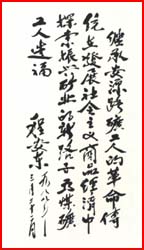 继承安源路矿工人的革命传
统在发展社会主义商品经济中
探索振兴矿业的新路子为煤矿
工人造福
一九八八年
三月二十二日